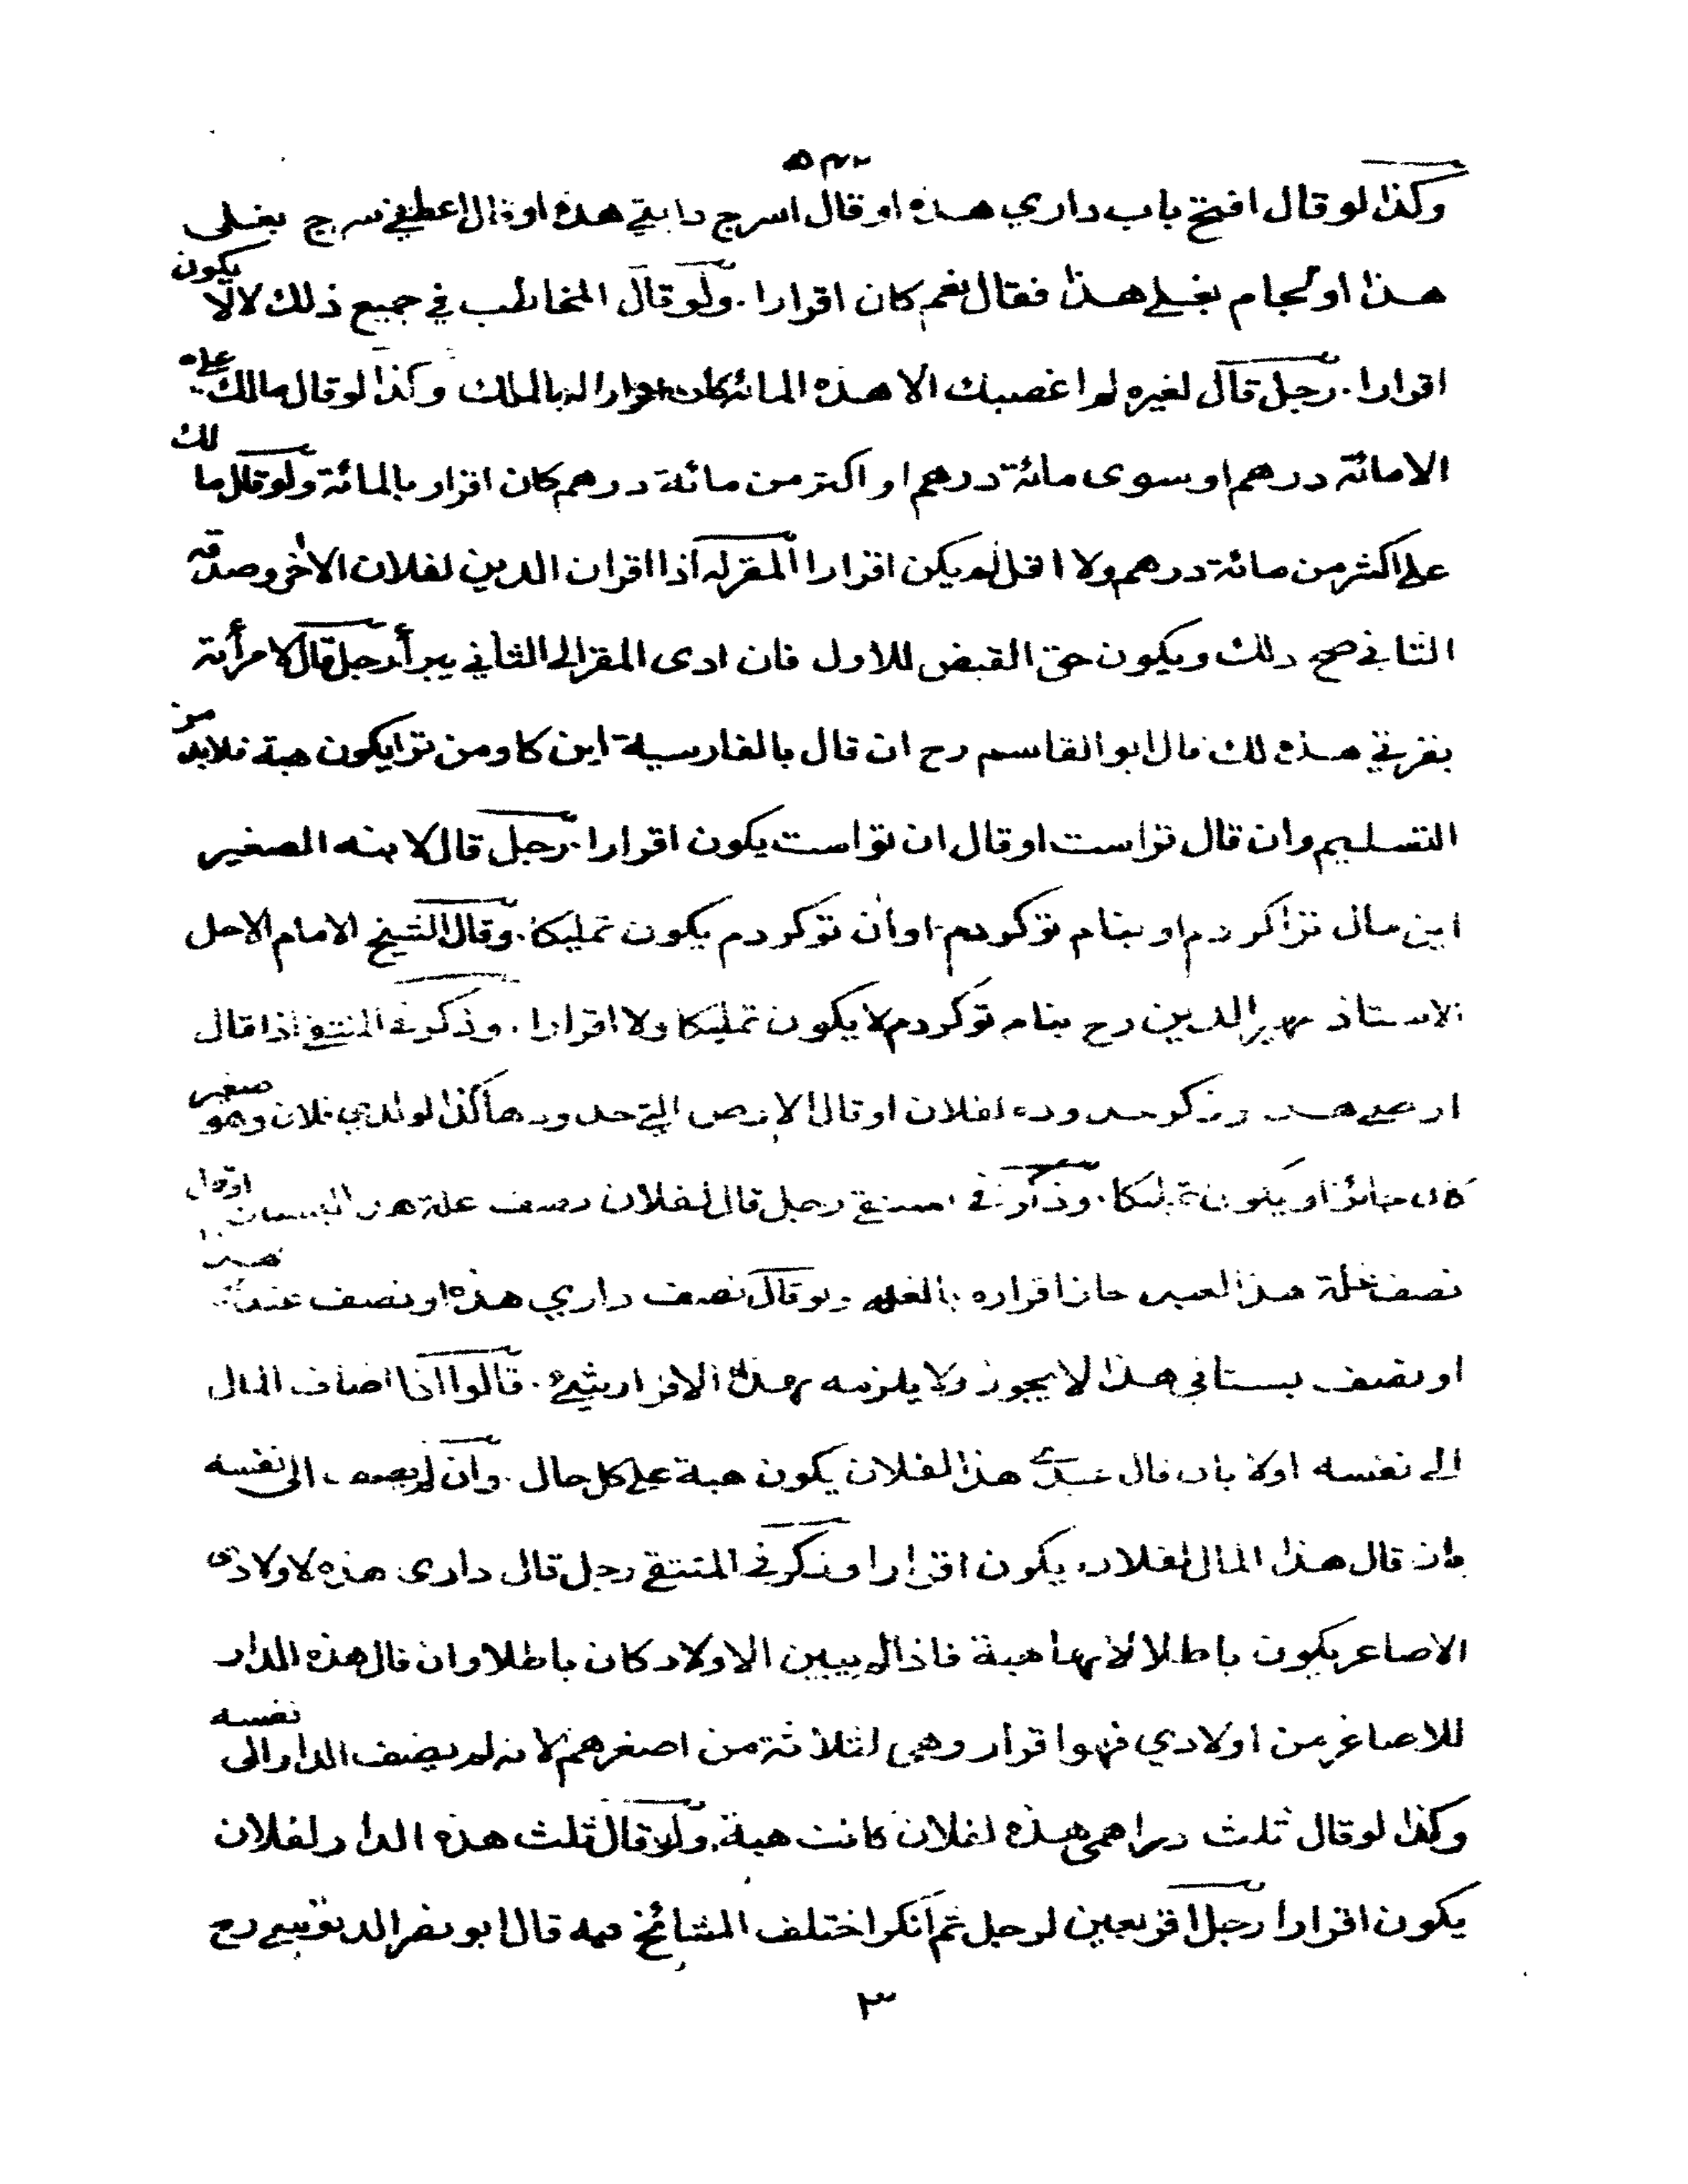 وكذا لو قال افتح باب داري هذه او قال اسرج دابتي هذه او قال اعطني سرج بغلي
هذا او لجام بغلي هذا فقال نعم كان اقرارا. ولو قال المخاطب في جميع ذلك لا لا يكون
اقرارا. رجل قال لغيره لم اغصبك الا هذه المائة كان اقرارا له بالملك وكذا لو قال مالك عليّ
الا مائة درهم او سوى مائة درهم او اكثر من مائة درهم كان اقرار بالمائة ولو قال ما لك
علي اكثر من مائة درهم ولا اقل لم يكن اقرارا المقرله اذا اقر ان الدين لفلان الاخر وصدقه
الثاني صح ذلك ويكون حق القبض للاول فان ادى المقر الى الثاني يبرأ رجل قال لامرأته
بقرتي هذه لك قال ابو القاسم رح ان قال بالفارسية اين كاو من ترا يكون هبة فلابد من
التسليم وان قال تراست او قال ان تواست يكون اقرارا. رجل قال لابنه الصغير
اين مال ترا كردم او بنام تو كردم او ان تو كردم يكون تمليكا. وقال الشيخ الامام الاجل
الاستاذ ظهير الدين رح بنام تو كردم لا يكون تمليكا ولا اقرارا. وذكر في المنتقى اذا قال
ارضي هذه وذكر حدوده لفلان او قال الارض التي حدودها كذا لولدي فلان وهو صغير
كان جائزا ويكون تمليكا. وذكر في المنتقى رجل قال لفلان نصف غلة هذا البستان او قال
نصف غلة هذا العبد جاز اقراره بالغلة ولو قال نصف داري هذه او نصف عبدي هذا
او نصف بستاني هذا لا يجوز ولا يلزمه بهذا الاقرار شيء. قالوا اذا اضاف المال
الى نفسه اولا بان قال عبدي هذا لفلان يكون هبة على كل حال. وان لم يضف الى نفسه
بان قال هذا المال لفلان يكون اقرارا وذكر في المنتقى رجل قال داري هذه لاولادي
الاصاغر يكون باطلا لانها هبة فاذا لم يبين الاولاد كان باطلا وان قال هذه الدار
للاصاغر من اولادي فهو اقرار وهي لثلاثة من اصغرهم لانه لم يضف الدار الى نفسه
وكذا لو قال ثلث دراهمي هذه لفلان كانت هبة. ولو قال ثلث هذه الدار لفلان
يكون اقرارا رجل اقر بعين لرجل ثم انكر اختلف المشائخ فيه قال ابو نصر الدبوسي رح
٣